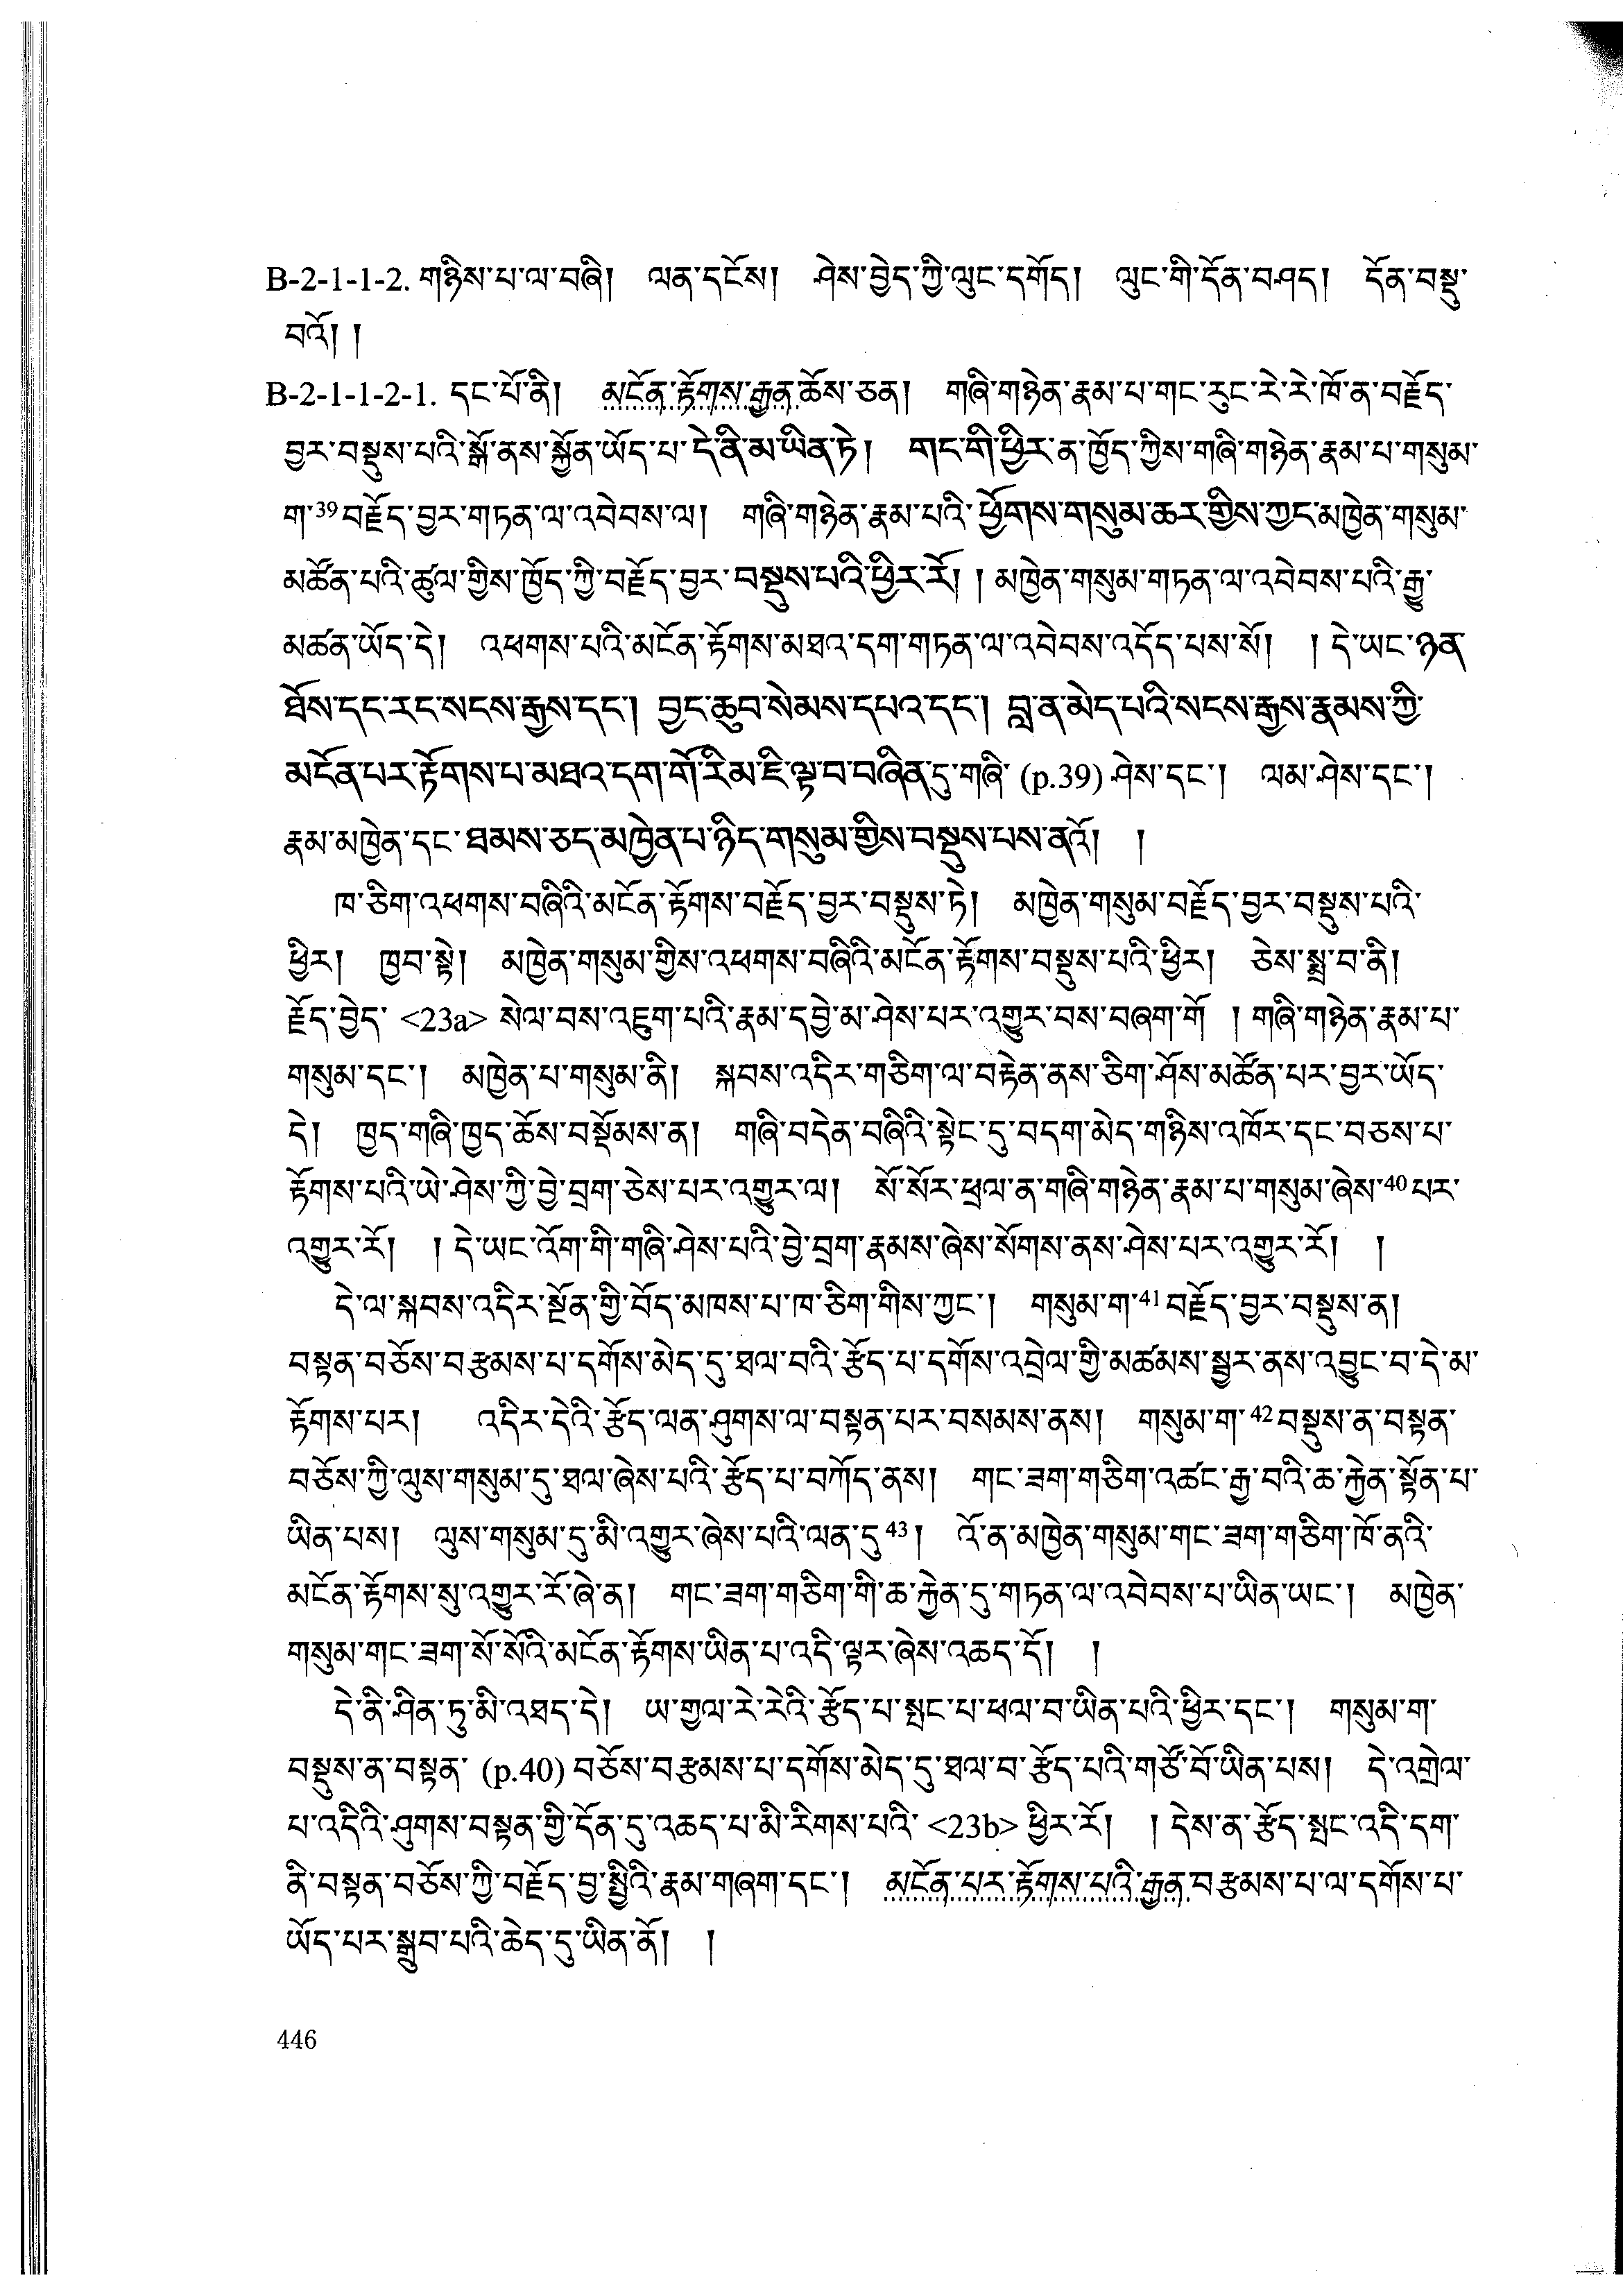 B-2-1-1-2. གཉིས་པ་ལ་བཞི། ལན་དངོས། ཤེས་བྱེད་ཀྱི་ལུང་དགོད། ལུང་གི་དོན་བཤད། དོན་བསྡུ་
བའོ། །
B-2-1-1-2-1. དང་པོ་ནི། མངོན་རྟོགས་རྒྱན་ཆོས་ཅན། གཞི་གཉེན་རྣམ་པ་གང་རུང་རེ་རེ་ཁོ་ན་བརྗོད་
བྱར་བསྡུས་པའི་སྒོ་ནས་སྐྱོན་ཡོད་པ་དེ་ནི་མ་ཡིན་ཏེ། གང་གི་ཕྱིར་ན་ཁྱོད་ཀྱིས་གཞི་གཉེན་རྣམ་པ་གསུམ་
ག་39བརྗོད་བྱར་གཏན་ལ་འབེབས་ལ། གཞི་གཉེན་རྣམ་པའི་ཕྱོགས་གསུམ་ཆར་གྱིས་ཀྱང་མཁྱེན་གསུམ་
མཚོན་པའི་ཚུལ་གྱིས་ཁྱོད་ཀྱི་བརྗོད་བྱར་བསྡུས་པའི་ཕྱིར་རོ། ། མཁྱེན་གསུམ་གཏན་ལ་འབེབས་པའི་རྒྱུ་
མཚན་ཡོད་དེ། འཕགས་པའི་མངོན་རྟོགས་མཐའ་དག་གཏན་ལ་འབེབས་འདོད་པས་སོ། ། དེ་ཡང་ཉན་
ཐོས་དང་རང་སངས་རྒྱས་དང་། བྱང་ཆུབ་སེམས་དཔའ་དང་། བླ་ན་མེད་པའི་སངས་རྒྱས་རྣམས་ཀྱི་
མངོན་པར་རྟོགས་པ་མཐའ་དག་གོ་རིམ་ཇི་ལྟ་བ་བཞིན་དུ་གཞི་ (p.39) ཤེས་དང་། ལམ་ཤེས་དང་།
རྣམ་མཁྱེན་དང་ཐམས་ཅད་མཁྱེན་པ་ཉིད་གསུམ་གྱིས་བསྡུས་པས་ནའོ། །
ཁ་ཅིག་འཕགས་བཞིའི་མངོན་རྟོགས་བརྗོད་བྱར་བསྡུས་ཏེ། མཁྱེན་གསུམ་བརྗོད་བྱར་བསྡུས་པའི་
ཕྱིར། ཁྱབ་སྟེ། མཁྱེན་གསུམ་གྱིས་འཕགས་བཞིའི་མངོན་རྟོགས་བསྡུས་པའི་ཕྱིར། ཅེས་སྨྲ་བ་ནི།
རྗོད་བྱེད་ <23a> སེལ་བས་འཇུག་པའི་རྣམ་དབྱེ་མ་ཤེས་པར་འགྱུར་བས་བཞག་གོ །གཞི་གཉེན་རྣམ་པ་
གསུམ་དང་། མཁྱེན་པ་གསུམ་ནི། སྐབས་འདིར་གཅིག་ལ་བརྟེན་ནས་ཅིག་ཤོས་མཚོན་པར་བྱར་ཡོད་
དེ། ཁྱད་གཞི་ཁྱད་ཆོས་བསྡོམས་ན། གཞི་བདེན་བཞིའི་སྟེང་དུ་བདག་མེད་གཉིས་འཁོར་དང་བཅས་པ་
རྟོགས་པའི་ཡེ་ཤེས་ཀྱི་བྱེ་བྲག་ཅེས་པར་འགྱུར་ལ། སོ་སོར་ཕྲལ་ན་གཞི་གཉེན་རྣམ་པ་གསུམ་ཞེས་40པར་
འགྱུར་རོ། ། དེ་ཡང་འོག་གི་གཞི་ཤེས་པའི་བྱེ་བྲག་རྣམས་ཞེས་སོགས་ནས་ཤེས་པར་འགྱུར་རོ། །
དེ་ལ་སྐབས་འདིར་སྔོན་གྱི་བོད་མཁས་པ་ཁ་ཅིག་གིས་ཀྱང་། གསུམ་ག་41བརྗོད་བྱར་བསྡུས་ན།
བསྟན་བཅོས་བརྩམས་པ་དགོས་མེད་དུ་ཐལ་བའི་རྩོད་པ་དགོས་འབྲེལ་གྱི་མཚམས་སྦྱར་ནས་འབྱུང་བ་དེ་མ་
རྟོགས་པར། འདིར་དེའི་རྩོད་ལན་ཤུགས་ལ་བསྟན་པར་བསམས་ནས། གསུམ་ག་42བསྡུས་ན་བསྟན་
བཅོས་ཀྱི་ལུས་གསུམ་དུ་ཐལ་ཞེས་པའི་རྩོད་པ་བཀོད་ནས། གང་ཟག་གཅིག་འཚང་རྒྱ་བའི་ཆ་རྐྱེན་སྟོན་པ་
ཡིན་པས། ལུས་གསུམ་དུ་མི་འགྱུར་ཞེས་པའི་ལན་དུ43། འོ་ན་མཁྱེན་གསུམ་གང་ཟག་གཅིག་ཁོ་ནའི་
མངོན་རྟོགས་སུ་འགྱུར་རོ་ཞེ་ན། གང་ཟག་གཅིག་གི་ཆ་རྐྱེན་དུ་གཏན་ལ་འབེབས་པ་ཡིན་ཡང་། མཁྱེན་
གསུམ་གང་ཟག་སོ་སོའི་མངོན་རྟོགས་ཡིན་པ་འདི་ལྟར་ཞེས་འཆད་དོ། །
དེ་ནི་ཤིན་ཏུ་མི་འཐད་དེ། ཡ་གྱལ་རེ་རེའི་རྩོད་པ་སྤང་པ་ཕལ་བ་ཡིན་པའི་ཕྱིར་དང་། གསུམ་ག་
བསྡུས་ན་བསྟན་ (p.40) བཅོས་བརྩམས་པ་དགོས་མེད་དུ་ཐལ་བ་རྩོད་པའི་གཙོ་བོ་ཡིན་པས། དེ་འགྲེལ་
པ་འདིའི་ཤུགས་བསྟན་གྱི་དོན་དུ་འཆད་པ་མི་རིགས་པའི་ <23b> ཕྱིར་རོ། ། དེས་ན་རྩོད་སྤང་འདི་དག་
ནི་བསྟན་བཅོས་ཀྱི་བརྗོད་བྱ་སྤྱིའི་རྣམ་གཞག་དང་། མངོན་པར་རྟོགས་པའི་རྒྱན་བརྩམས་པ་ལ་དགོས་པ་
ཡོད་པར་སྒྲུབ་པའི་ཆེད་དུ་ཡིན་ནོ། །
446